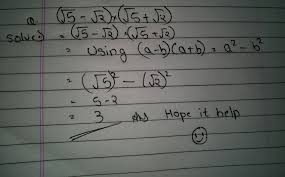 Q (√5 - √2) × (√5 + √2)
Solve:) = (√5 - √2) · (√5 + √2)
= Using (a-b)(a+b) = a² - b²
= (√5)² - (√2)²
= 5 - 2
= 3 Ans Hope it help